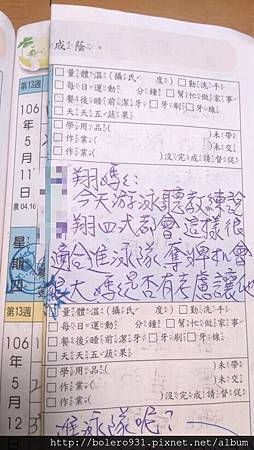 成蔭
第13週
106年5月11日
農04.16
星期四
□量體溫(攝氏 度)□勤洗手
□每日運動 分鐘□幫忙做家事
□餐後睡前潔牙□牙刷□牙線
□天天五蔬果
□學用品( )未帶
□作業( )未交
□作業( )沒完成請督促
翔媽:
今天游泳聽教練說
翔四式都會 這樣很
適合進泳隊 奪牌机會
很大 媽是否有考慮讓他
第13週
106年5月12日
□量體溫(攝氏 度)□勤洗手
□每日運動 分鐘□幫忙做家事
□餐後睡前潔牙□牙刷□牙線
□天天五蔬果
□學用品( )未帶
□作業( )未交
□作業( )沒完成請督促
進泳隊呢?
http://bolero931.pixnet.net/album